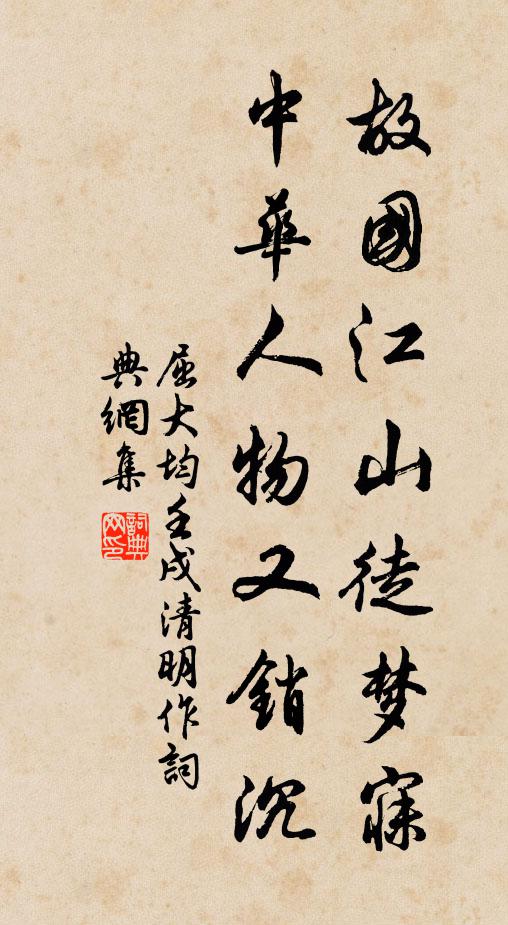 故國江山徒梦寐
中華人物又銷沉
屈大均壬戌清明作詞
典網集
詞典
网印